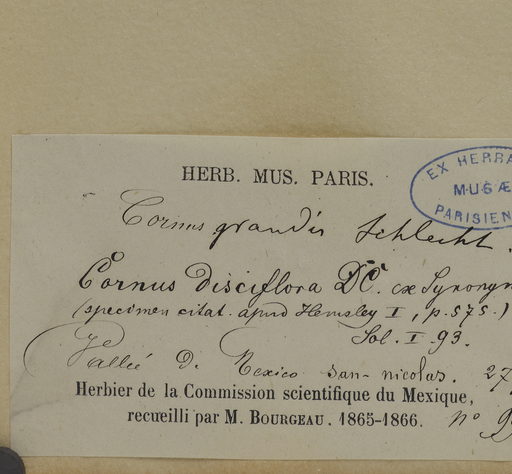 HERB. MUS. PARIS.
EX HERBA
MUSÆ
PARISIEN
Cornus grandis Schlecht.
Cornus disciflora DC. ex Synonym
(specimen citat. apud Hemsley I, p. 575.)
Sol. I. 93.
Vallée de Mexico san-nicolas. 27
Herbier de la Commission scientifique du Mexique,
recueilli par M. BOURGEAU. 1865-1866. n°